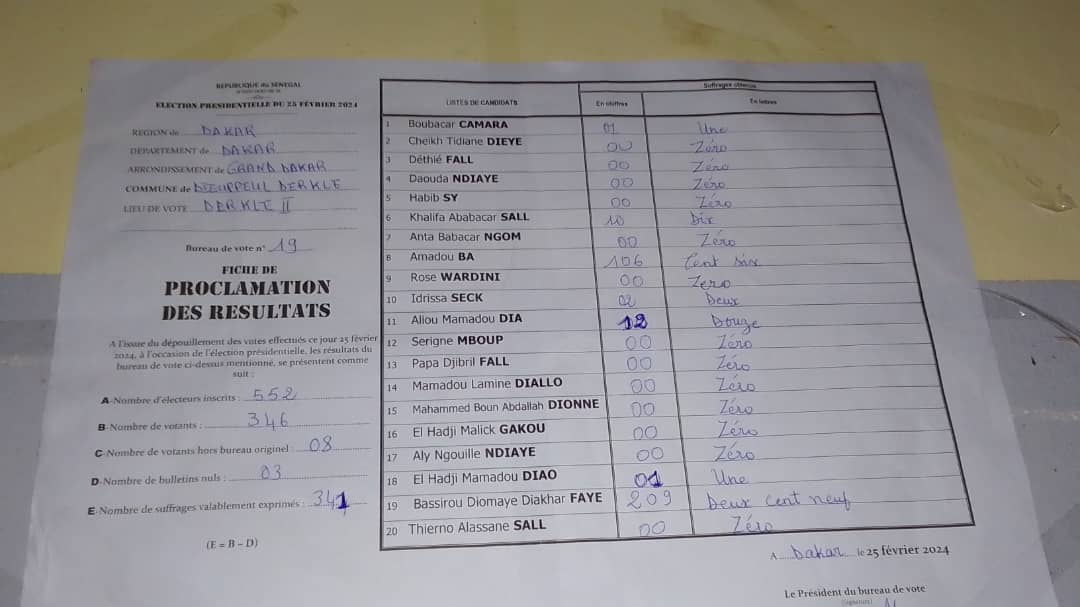 REPUBLIQUE du SENEGAL
ELECTION PRESIDENTIELLE DU 25 FÉVRIER 2024
REGION de DAKAR
DEPARTEMENT de DAKAR
ARRONDISSEMENT de GRAND DAKAR
COMMUNE de DIEUPPEUL DERKLE
LIEU DE VOTE DERKLE II
Bureau de vote n° 19
FICHE DE
PROCLAMATION
DES RESULTATS
A l'issue du dépouillement des votes effectués ce jour 25 février
2024, à l'occasion de l'élection présidentielle, les résultats du
bureau de vote ci-dessus mentionné, se présentent comme
suit :
A-Nombre d'électeurs inscrits : 552
B-Nombre de votants : 346
C-Nombre de votants hors bureau originel : 08
D-Nombre de bulletins nuls : 03
E-Nombre de suffrages valablement exprimés : 341
(E = B – D)
Suffrages obtenus
LISTES DE CANDIDATS En chiffres En lettres
1 Boubacar CAMARA 01 Une
2 Cheikh Tidiane DIEYE 00 Zéro
3 Déthié FALL 00 Zéro
4 Daouda NDIAYE 00 Zéro
5 Habib SY 00 Zéro
6 Khalifa Ababacar SALL 10 Dix
7 Anta Babacar NGOM 00 Zéro
8 Amadou BA 106 Cent six
9 Rose WARDINI 00 Zero
10 Idrissa SECK 02 Deux
11 Aliou Mamadou DIA 12 Douze
12 Serigne MBOUP 00 Zéro
13 Papa Djibril FALL 00 Zéro
14 Mamadou Lamine DIALLO 00 Zéro
15 Mahammed Boun Abdallah DIONNE 00 Zéro
16 El Hadji Malick GAKOU 00 Zéro
17 Aly Ngouille NDIAYE 00 Zéro
18 El Hadji Mamadou DIAO 01 Une
19 Bassirou Diomaye Diakhar FAYE 209 Deux cent neuf
20 Thierno Alassane SALL 00 Zéro
A Dakar le 25 février 2024
Le Président du bureau de vote
(signature)